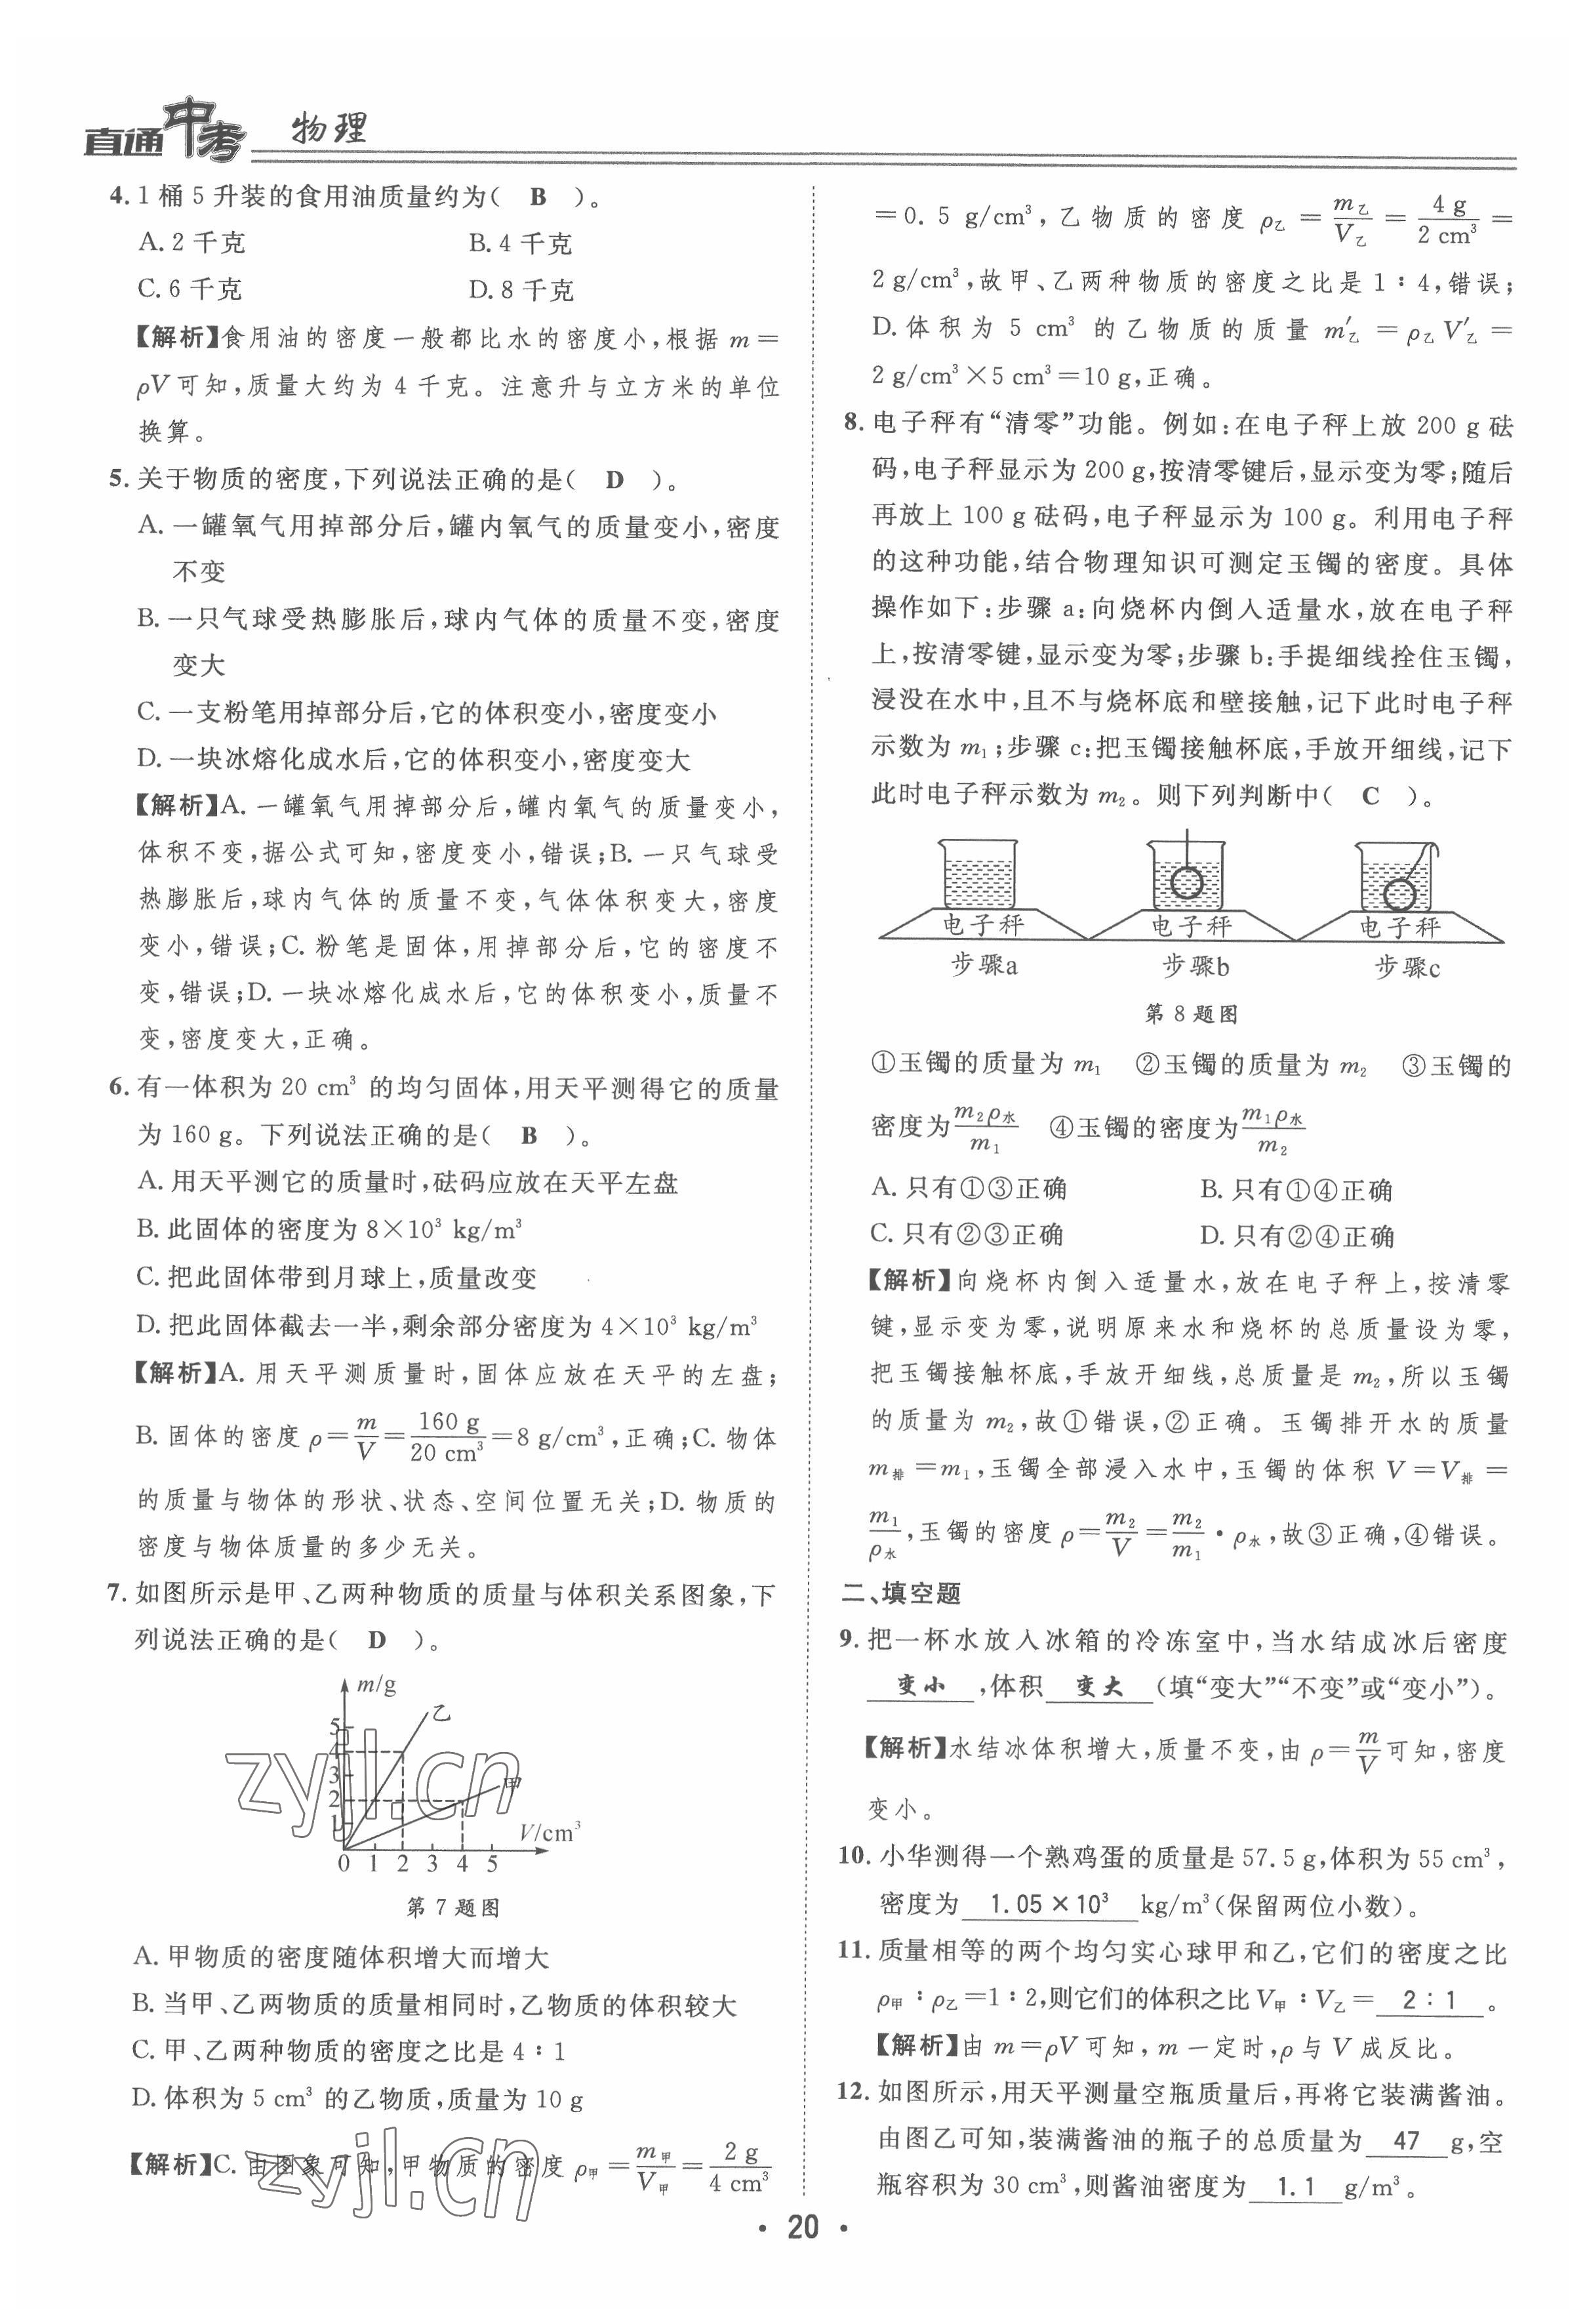 直通中考 物理
4. 1 桶 5 升装的食用油质量约为( B )。
A. 2 千克 B. 4 千克
C. 6 千克 D. 8 千克
【解析】食用油的密度一般都比水的密度小,根据 m=
ρV 可知,质量大约为 4 千克。注意升与立方米的单位
换算。
5. 关于物质的密度,下列说法正确的是( D )。
A. 一罐氧气用掉部分后,罐内氧气的质量变小,密度
不变
B. 一只气球受热膨胀后,球内气体的质量不变,密度
变大
C. 一支粉笔用掉部分后,它的体积变小,密度变小
D. 一块冰熔化成水后,它的体积变小,密度变大
【解析】A. 一罐氧气用掉部分后,罐内氧气的质量变小,
体积不变,据公式可知,密度变小,错误;B. 一只气球受
热膨胀后,球内气体的质量不变,气体体积变大,密度
变小,错误;C. 粉笔是固体,用掉部分后,它的密度不
变,错误;D. 一块冰熔化成水后,它的体积变小,质量不
变,密度变大,正确。
6. 有一体积为 20 cm³ 的均匀固体,用天平测得它的质量
为 160 g。下列说法正确的是( B )。
A. 用天平测它的质量时,砝码应放在天平左盘
B. 此固体的密度为 8×10³ kg/m³
C. 把此固体带到月球上,质量改变
D. 把此固体截去一半,剩余部分密度为 4×10³ kg/m³
【解析】A. 用天平测质量时,固体应放在天平的左盘;
B. 固体的密度 ρ=m/V=160 g/20 cm³=8 g/cm³,正确;C. 物体
的质量与物体的形状、状态、空间位置无关;D. 物质的
密度与物体质量的多少无关。
7. 如图所示是甲、乙两种物质的质量与体积关系图象,下
列说法正确的是( D )。
m/g
乙
5
4
3
2
1
甲
V/cm³
0 1 2 3 4 5
zyjl.cn
第 7 题图
A. 甲物质的密度随体积增大而增大
B. 当甲、乙两物质的质量相同时,乙物质的体积较大
C. 甲、乙两种物质的密度之比是 4∶1
D. 体积为 5 cm³ 的乙物质,质量为 10 g
【解析】C. 由图象可知,甲物质的密度 ρ甲=m甲/V甲=2 g/4 cm³
zyjl.cn
=0.5 g/cm³,乙物质的密度 ρ乙=m乙/V乙=4 g/2 cm³=
2 g/cm³,故甲、乙两种物质的密度之比是 1∶4,错误;
D. 体积为 5 cm³ 的乙物质的质量 m′乙=ρ乙V′乙=
2 g/cm³×5 cm³=10 g,正确。
8. 电子秤有“清零”功能。例如:在电子秤上放 200 g 砝
码,电子秤显示为 200 g,按清零键后,显示变为零;随后
再放上 100 g 砝码,电子秤显示为 100 g。利用电子秤
的这种功能,结合物理知识可测定玉镯的密度。具体
操作如下:步骤 a:向烧杯内倒入适量水,放在电子秤
上,按清零键,显示变为零;步骤 b:手提细线拴住玉镯,
浸没在水中,且不与烧杯底和壁接触,记下此时电子秤
示数为 m₁;步骤 c:把玉镯接触杯底,手放开细线,记下
此时电子秤示数为 m₂。则下列判断中( C )。
电子秤 电子秤 电子秤
步骤a 步骤b 步骤c
第 8 题图
①玉镯的质量为 m₁ ②玉镯的质量为 m₂ ③玉镯的
密度为m₂ρ水/m₁ ④玉镯的密度为m₁ρ水/m₂
A. 只有①③正确 B. 只有①④正确
C. 只有②③正确 D. 只有②④正确
【解析】向烧杯内倒入适量水,放在电子秤上,按清零
键,显示变为零,说明原来水和烧杯的总质量设为零,
把玉镯接触杯底,手放开细线,总质量是 m₂,所以玉镯
的质量为 m₂,故①错误,②正确。玉镯排开水的质量
m排=m₁,玉镯全部浸入水中,玉镯的体积 V=V排=
m₁/ρ水,玉镯的密度 ρ=m₂/V=m₂/m₁·ρ水,故③正确,④错误。
二、填空题
9. 把一杯水放入冰箱的冷冻室中,当水结成冰后密度
变小,体积 变大 (填“变大”“不变”或“变小”)。
【解析】水结冰体积增大,质量不变,由 ρ=m/V可知,密度
变小。
10. 小华测得一个熟鸡蛋的质量是 57.5 g,体积为 55 cm³,
密度为 1.05×10³ kg/m³(保留两位小数)。
11. 质量相等的两个均匀实心球甲和乙,它们的密度之比
ρ甲∶ρ乙=1∶2,则它们的体积之比 V甲∶V乙= 2∶1 。
【解析】由 m=ρV 可知,m 一定时,ρ 与 V 成反比。
12. 如图所示,用天平测量空瓶质量后,再将它装满酱油。
由图乙可知,装满酱油的瓶子的总质量为 47 g,空
瓶容积为 30 cm³,则酱油密度为 1.1 g/m³。
· 20 ·